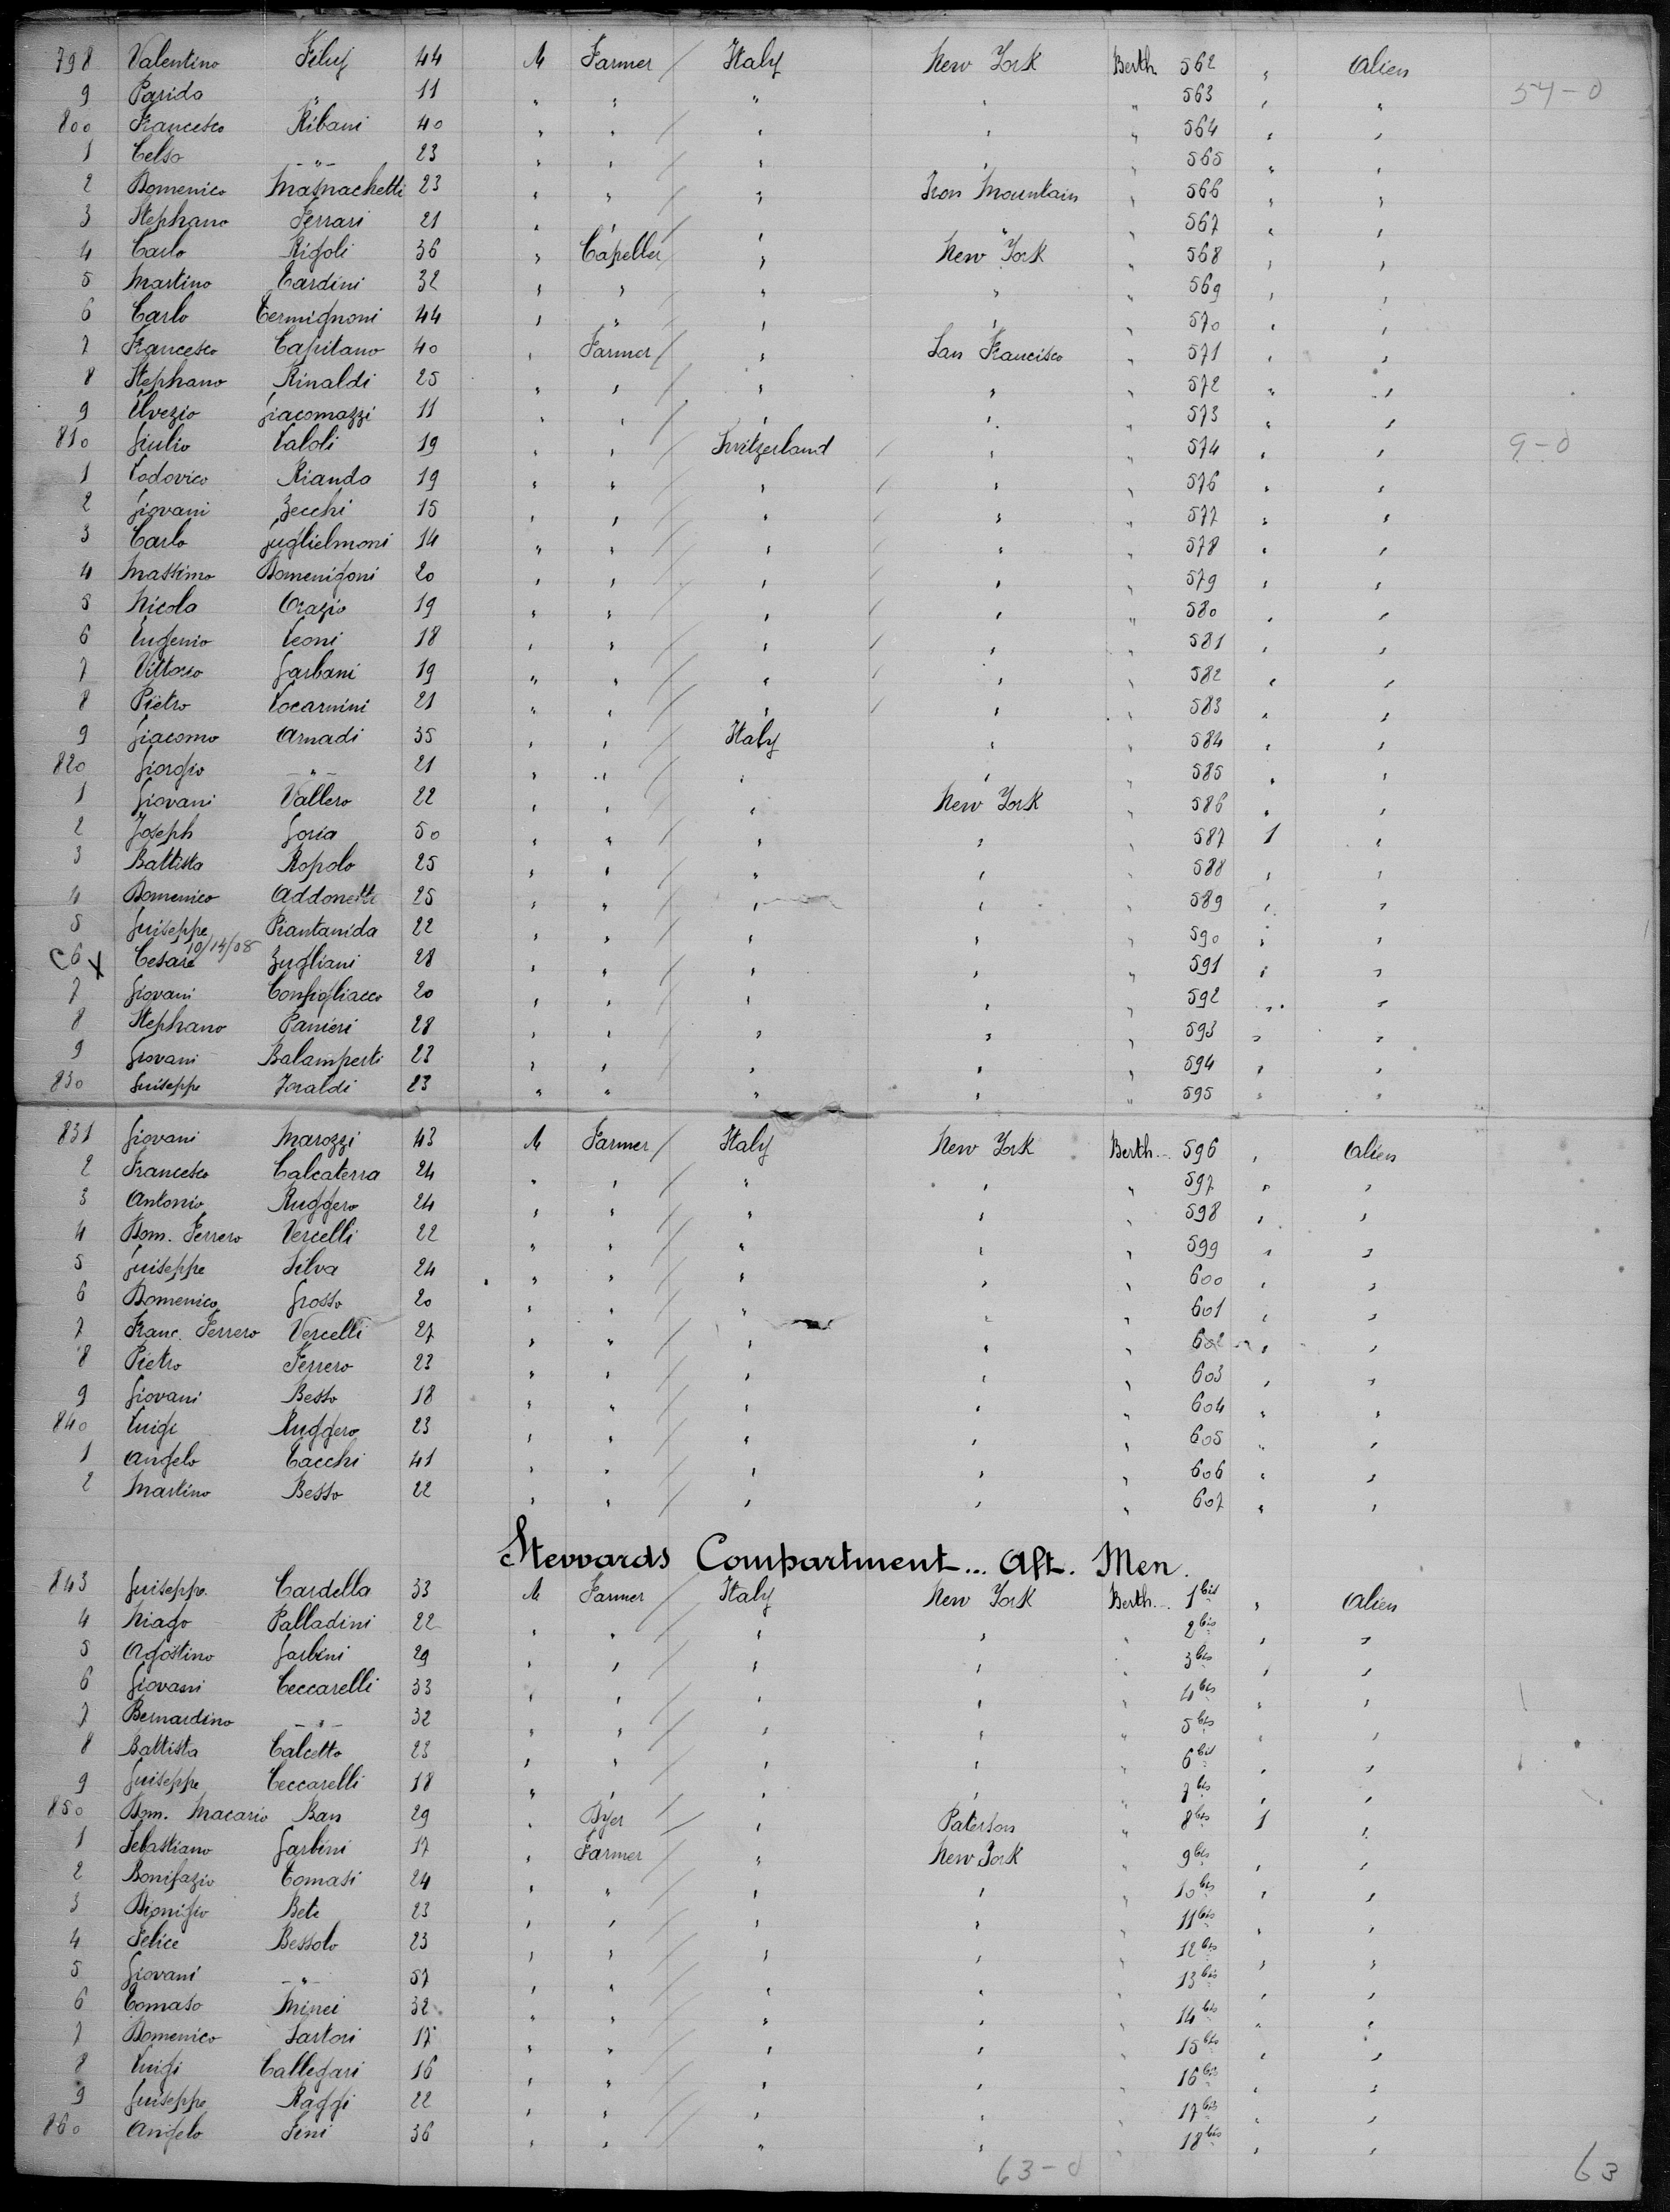 798 Valentino Filuf 44 M Farmer / Italy New York Berth 562 " Alien
9 Parido " 11 " " " " " 563 " " 54-0
800 Francesco Ribani 40 " " / " " " 564 " "
1 Celso -"- 23 " " / " " " 565 " "
2 Domenico Magnachetti 23 " " / " Iron Mountain " 566 " "
3 Stephano Ferrari 21 " " / " " " 567 " "
4 Carlo Rigoli 36 " Capeller / " New York " 568 " "
5 Martino Tardini 32 " " / " " " 569 " "
6 Carlo Termignoni 44 " " / " " " 570 " "
7 Francesco Capitano 40 " Farmer / " San Francisco " 571 " "
8 Stephano Rinaldi 25 " " / " " " 572 " "
9 Elvezio Giacomazzi 11 " " / " " " 573 " "
810 Giulio Taloli 19 " " / Switzerland / " " 574 " " 9-0
1 Lodovico Rianda 19 " " / " / " " 576 " "
2 Giovani Zecchi 15 " " / " / " " 577 " "
3 Carlo Guglielmoni 14 " " / " / " " 578 " "
4 Massimo Domenigoni 20 " " / " / " " 579 " "
5 Nicola Orazio 19 " " / " / " " 580 " "
6 Eugenio Leoni 18 " " / " / " " 581 " "
7 Vittorio Garbani 19 " " / " / " " 582 " "
8 Pietro Locarnini 21 " " / " / " " 583 " "
9 Giacomo Arnadi 35 " " / Italy " " 584 " "
820 Giorgio -"- 21 " " / " " " 585 " "
1 Giovani Vallero 22 " " / " New York " 586 " "
2 Joseph Goria 50 " " / " " " 587 1 "
3 Battista Ropolo 25 " " / " " " 588 " "
4 Domenico Addonetti 25 " " / " " " 589 " "
5 Guiseppe Piantanida 22 " " / " " " 590 " "
C 6 X Cesare 10/14/08 Zugliani 28 " " / " " " 591 " "
7 Giovani Consigliacco 20 " " / " " " 592 " "
8 Stephano Panieri 28 " " / " " " 593 " "
9 Giovani Balamperti 23 " " / " " " 594 " "
830 Guiseppe Joraldi 23 " " " " " 595 " "
831 Giovani Marozzi 43 M Farmer / Italy New York Berth 596 " Alien
2 Francesco Calcaterra 24 " " / " " " 597 " "
3 Antonio Ruggero 24 " " / " " " 598 " "
4 Dom. Ferrero Vercelli 22 " " / " " " 599 " "
5 Guiseppe Silva 24 " " / " " " 600 " "
6 Domenico Grosso 20 " " / " " " 601 " "
7 Franc. Ferrero Vercelli 27 " " / " " " 602 " "
8 Pietro Ferrero 23 " " / " " " 603 " "
9 Giovani Besso 18 " " / " " " 604 " "
840 Luigi Ruggero 23 " " / " " " 605 " "
1 Angelo Tacchi 41 " " / " " " 606 " "
2 Martino Besso 22 " " / " " " 607 " "
Stewards Compartment... Aft. Men.
843 Guiseppe Cardella 33 M Farmer / Italy New York Berth 1 bis " Alien
4 Niago Palladini 22 " " / " " " 2 bis " "
5 Agostino Garbini 29 " " / " " " 3 bis " "
6 Giovani Ceccarelli 33 " " / " " " 4 bis " "
7 Bernardino -"- 32 " " / " " " 5 bis " "
8 Battista Calcetto 23 " " / " " " 6 bis " "
9 Guiseppe Ceccarelli 18 " " / " " " 7 bis " "
850 Dom. Macario Ban 29 " Dyer / " Paterson " 8 bis 1 "
1 Sebastiano Garbini 17 " Farmer / " New York " 9 bis " "
2 Bonifazio Tomasi 24 " " / " " " 10 bis " "
3 Dionisio Beti 23 " " / " " " 11 bis " "
4 Felice Bessolo 23 " " / " " " 12 bis " "
5 Giovani -"- 57 " " / " " " 13 bis " "
6 Tomaso Minei 32 " " / " " " 14 bis " "
7 Domenico Sartori 17 " " / " " " 15 bis " "
8 Luigi Callegari 16 " " / " " " 16 bis " "
9 Guiseppe Raggi 22 " " / " " " 17 bis " "
860 Angelo Seni 36 " " / " " " 18 bis " "
63-0 63